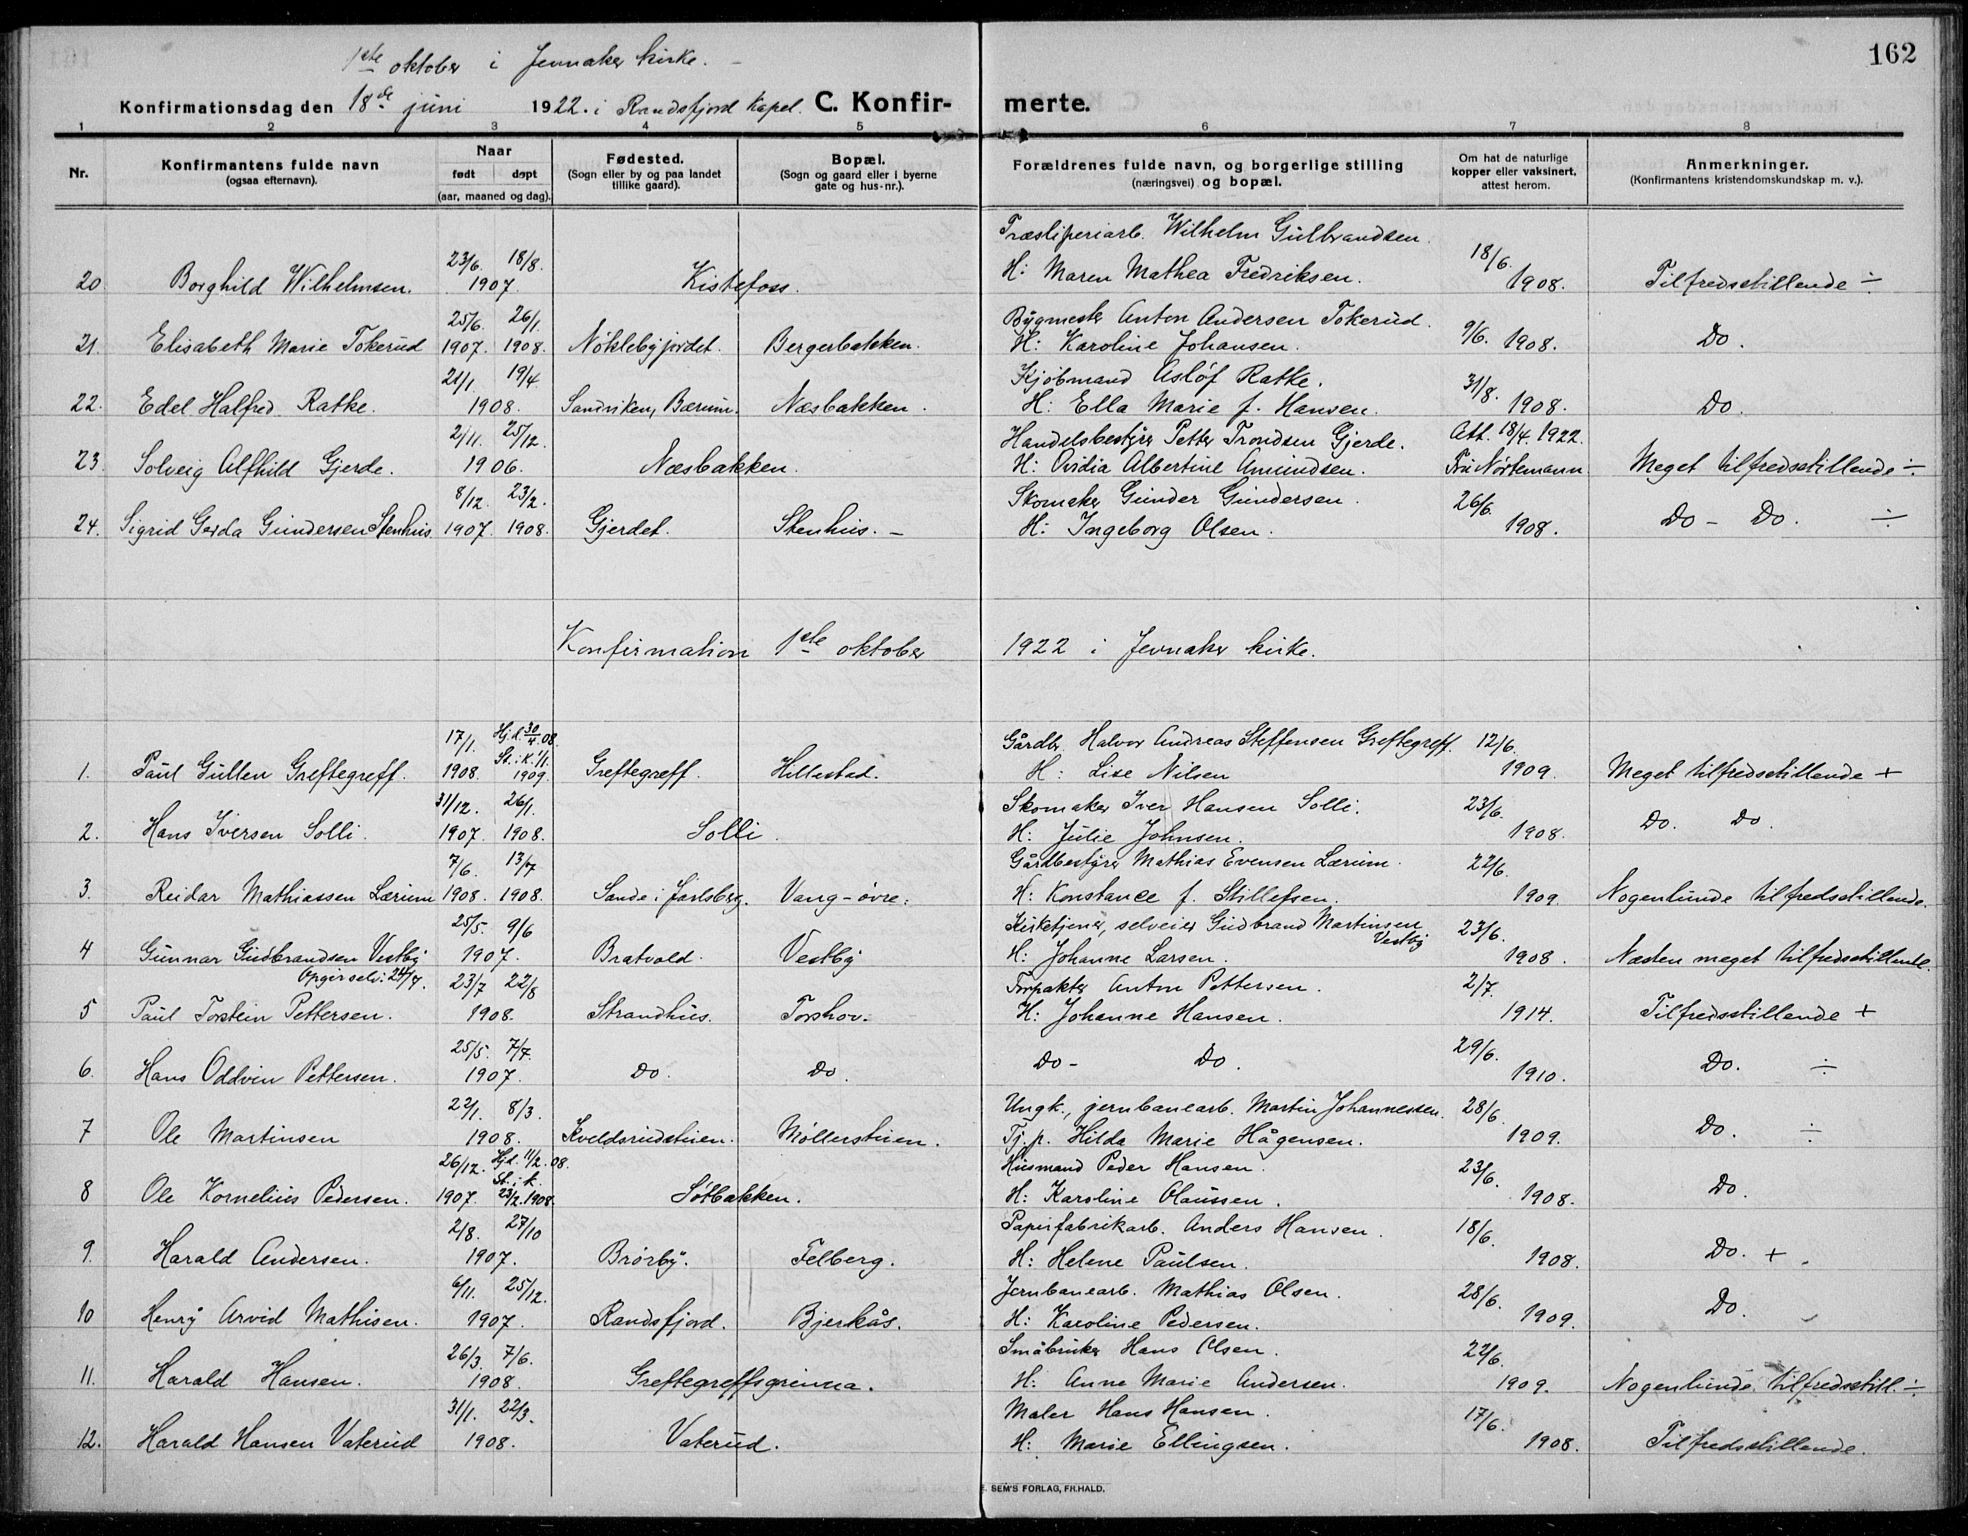 162
1ste oktober i Jevnaker kirke. -
Konfirmationsdag den 18de juni 1922. i Randsfjord Kapel. C. Konfir- merte.
1 2 3 4 5 6 7 8
Nr. Konfirmantens fulde navn (ogsaa efternavn). Naar født døpt (aar, maaned og dag). Fødested. (Sogn eller by og paa landet tillike gaard). Bopæl. (Sogn og gaard eller i byerne gate og hus-nr.). Forældrenes fulde navn, og borgerlige stilling (næringsvei) og bopæl. Om hat de naturlige kopper eller vaksinert, attest herom. Anmerkninger. (Konfirmantens kristendomskundskap m. v.).
23/6. 18/8. Træsliperiarb. Wilhelm Gulbrandsen. 18/6.
20 Borghild Wilhelmsen. 1907. Kistefoss. H: Maren Mathea Fredriksen. 1908. Tilfredsstillende ÷
25/6. 26/1. Bygmester Anton Andersen Tokerud. 9/6.
21. Elisabeth Marie Tokerud 1907. 1908. Nøklebyjordet. Bergerbakken. H: Karoline Johansen. 1908. Do.
21/1. 19/4. Kjøbmand Asløf Ratke. 31/8.
22. Edel Halfred Ratke. 1908. Sandviken, Bærum. Næsbakken. H: Ella Marie f. Hansen. 1908. Do.
2/11. 25/12. Handelsbestyrer Petter Trondsen Gjerde. Att. 18/4. 1922.
23. Solveig Alfhild Gjerde. 1906. Næsbakken. H: Ovidia Albertine Amundsen. Fru Nørtemann. Meget tilfredsstillende ÷
8/12. 23/2. Skomaker Gunder Gundersen. 26/6.
24. Sigrid Gerda Gundersen Stenhus. 1907. 1908. Gjerdet. Stenhus. - H: Ingeborg Olsen. 1908. Do - Do. ÷
Konfirmation 1ste oktober 1922 i Jevnaker kirke.
17/1. Hj.d. 30/4.08. Gårdbr. Halvor Andreas Steffensen Greftegreff. 12/6.
1. Paul Gullen Greftegreff. 1908. St. i. K. 1/1. 1909. Greftegreff. Hillestad. H: Lise Nilsen 1909. Meget tilfredsstillende +
31/12. 26/1. Skomaker Iver Hansen Solli. 23/6.
2. Hans Iversen Solli. 1907. 1908. Solli. H: Julie Johnsen. 1908. Do. Do.
7/6. 13/7 Gårdbestyrer Mathias Evensen Lærum. 22/6.
3. Reidar Mathiassen Lærum 1908. 1908. Sande i Jarlsberg. Vang-øvre. H: Konstance f. Stillefsen. 1909. Nogenlunde tilfredsstillende.
25/5. 9/6 Kirketjener, selveier Gudbrand Martinsen Vestby 23/6.
4 Gunnar Gudbrandsen Vestby 1907. Bratvold. Vestby H: Johanne Larsen. 1908. Næsten meget tilfredsstillende.
Opgir selv: 24/7. 23/7 22/8 Forpakter Anton Pettersen. 2/7.
5 Paul Torstein Pettersen. 1908. Strandhus. Torshov. H: Johanne Hansen. 1914. Tilfredsstillende +
25/5. 7/7. 29/6.
6. Hans Oddvin Pettersen. 1907. Do. Do. Do- Do. 1910. Do. ÷
22/1. 8/3. Ungk., jernbanearb. Martin Johannessen. 28/6.
7 Ole Martinsen 1908. Kveldsrudstuen. Møllerstuen. Tj.p. Hilda Marie Hågensen. 1909. Do. ÷
26/12. Hjd. 11/2.08. Husmand Peder Hansen. 23/6.
8 Ole Kornelius Pedersen. 1907. St. i. k. 23/2.1908. Søtbakken. H: Karoline Olaussen. 1908. Do.
2/8. 27/10 Papirfabrikarb. Anders Hansen. 18/6.
9. Harald Andersen. 1907. Brørby. Felberg. H: Helene Paulsen. 1908. Do. +
6/11. 25/12. Jernbanearb. Mathias Olsen. 28/6.
10 Henry Arvid Mathisen. 1907. Randsfjord. Bjerkås. H: Karoline Pedersen. 1909. Do.
26/3. 7/6. Småbruker Hans Olsen. 22/6.
11. Harald Hansen. 1908. Greftegreffsgrinna. H: Anne Marie Andersen. 1909. Nogenlunde tilfredsstill. ÷
31/1. 22/3. Maler Hans Hansen. 17/6.
12. Harald Hansen Vaterud 1908. Vaterud. H: Marie Ellingsen. 1908. Tilfredsstillende.
SEM'S FORLAG, FR.HALD.